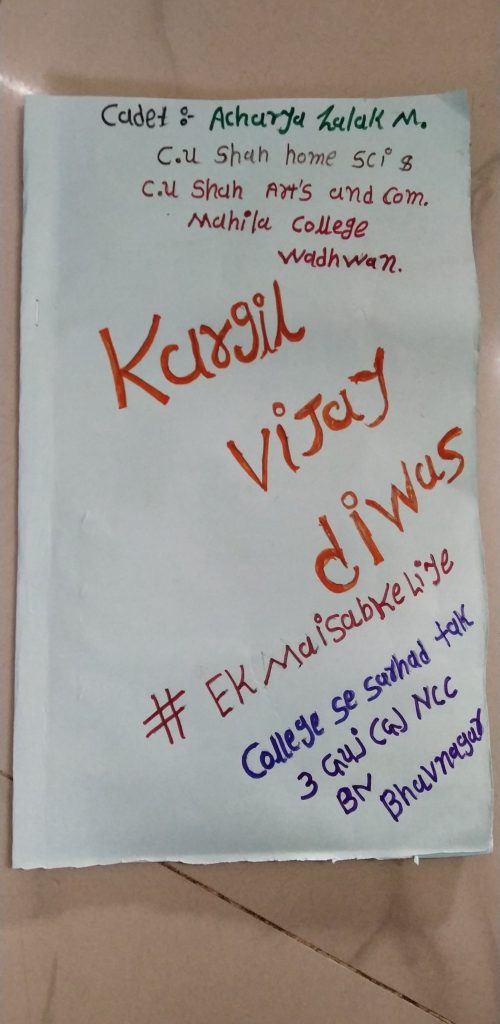 Cadet :- Acharya Zalak M.
C.U Shah home sci &
C.U Shah Art's and Com.
Mahila College
Wadhwan.
Kargil
Vijay
diwas
# EK Mai Sab Ke Liye
College se sarhad tak
3 Guj CGJ NCC
BN
Bhavnagar